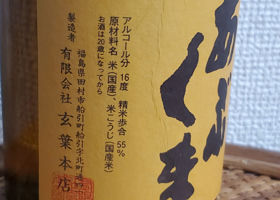 あぶくま
アルコール分 16度 精米歩合 55%
原材料名 米(国産) 米こうじ(国産米)
お酒は20歳になってから
製造者
福島県田村市船引町船引字北町通41
有限会社 玄葉本店